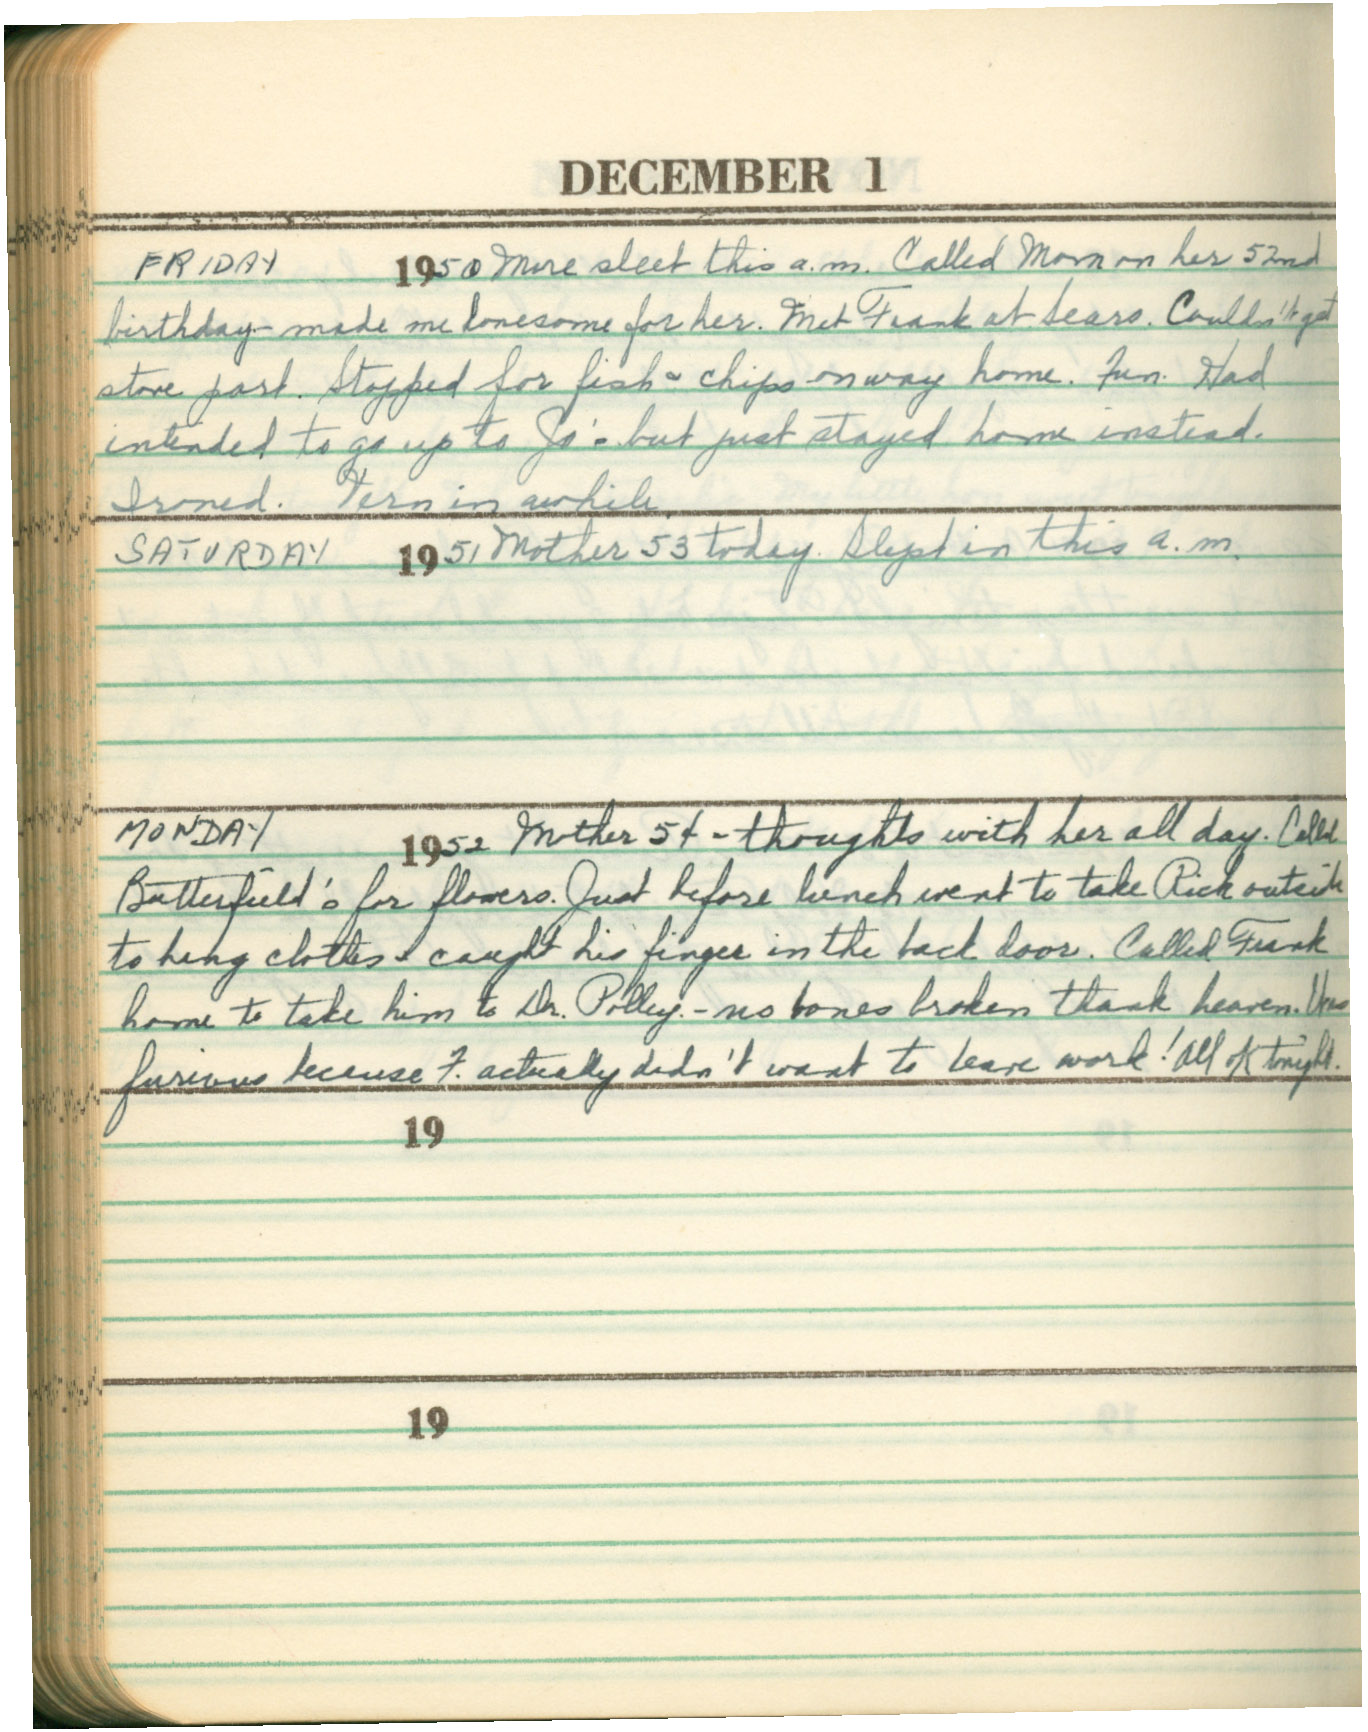 DECEMBER 1
FRIDAY 1950 More sleet this a.m. Called Mom on her 52nd
birthday - made me lonesome for her. Met Frank at Sears. Couldn't get
stove part. Stopped for fish & chips on way home. Fun. Had
intended to go up to Jo's - but just stayed home instead.
Ironed. Fern in awhile.
SATURDAY 1951 Mother 53 today. Slept in this a.m.
MONDAY 1952 Mother 54 - thoughts with her all day. Called
Butterfield's for flowers. Just before lunch went to take Rick outside
to hang clothes & caught his finger in the back door. Called Frank
home to take him to Dr. Polley. - no bones broken thank heaven. Was
furious because F. actually didn't want to leave work! All ok tonight.
19
19